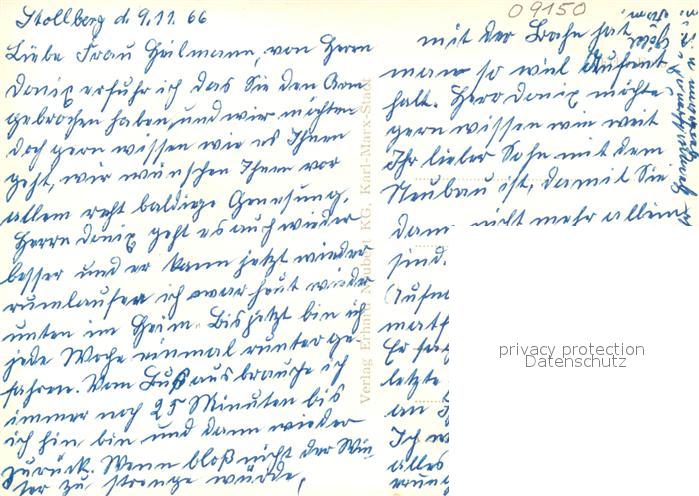 Stollberg d. 9.11.66
Liebe Frau Heilmann, von Herrn
Donix erfuhr ich das Sie den Arm
gebrochen haben, und wir möchten
doch gern wissen wie es Ihnen
geht, wir wünschen Ihnen vor
allem recht baldige Genesung.
Herrn Donix geht es auch wieder
besser und er kann jetzt wieder
rumlaufen ich war heut wieder
unten im Heim. Bis jetzt bin ich
jede Woche einmal runter ge-
fahren. Vom Bus aus brauche ich
immer noch 25 Minuten bis
ich hin bin und dann wieder
zurück. Wenn bloß nicht der Win-
ter zu strenge würde,
09150
mit der Bahn hat
man so viel Aufent
halt. Herr Donix möchte
gern wissen wie weit
Ihr lieber Sohn mit dem
Neubau ist, damit Sie
dann nicht mehr allein
sind.
Er
letzte
an
Ich
alles
Verlag Erhard Neubert KG, Karl-Marx-Stadt
privacy protection
Datenschutz